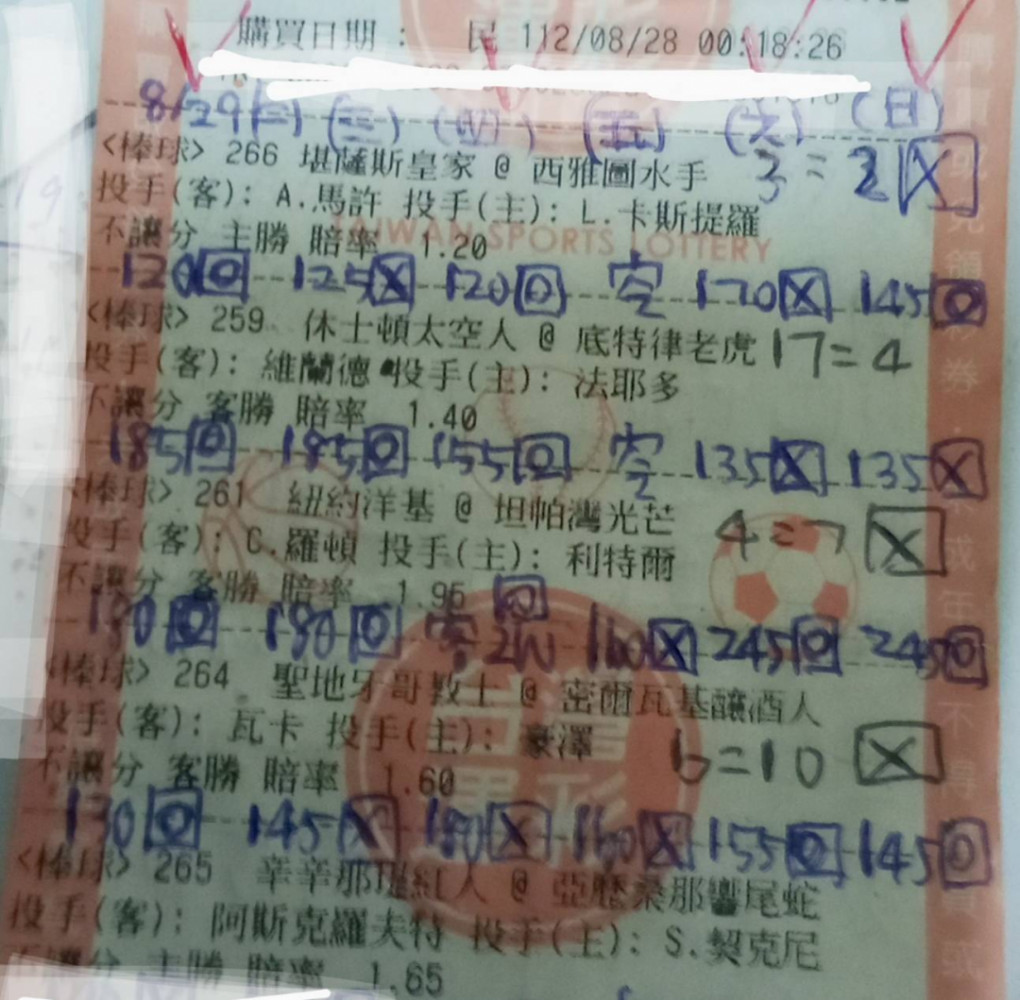 購買日期: 民 112/08/28 00:18:26
8/29(二) (三) (四) (五) (六) (日)
<棒球> 266 堪薩斯皇家 @ 西雅圖水手 3=2 X
投手(客): A.馬許 投手(主): L.卡斯提羅
TAIWAN SPORTS LOTTERY
不讓分 主勝 賠率 1.20
120 O 125 X 120 O 空 170 X 145 O
<棒球> 259 休士頓太空人 @ 底特律老虎 17=4
投手(客): 維蘭德 投手(主): 法耶多
不讓分 客勝 賠率 1.40
185 O 185 O 155 O 空 135 X 135 X
<棒球> 261 紐約洋基 @ 坦帕灣光芒 4=7 X
投手(客): C.羅頓 投手(主): 利特爾
不讓分 客勝 賠率 1.95
180 O 180 O 空 160 X 245 O 245 O
<棒球> 264 聖地牙哥教士 @ 密爾瓦基釀酒人
投手(客): 瓦卡 投手(主): 豪澤 6=10 X
不讓分 客勝 賠率 1.60
130 O 145 X 180 X 160 X 155 O 145 O
<棒球> 265 辛辛那堤紅人 @ 亞歷桑那響尾蛇
投手(客): 阿斯克羅夫特 投手(主): S.契克尼
不讓分 主勝 賠率 1.65